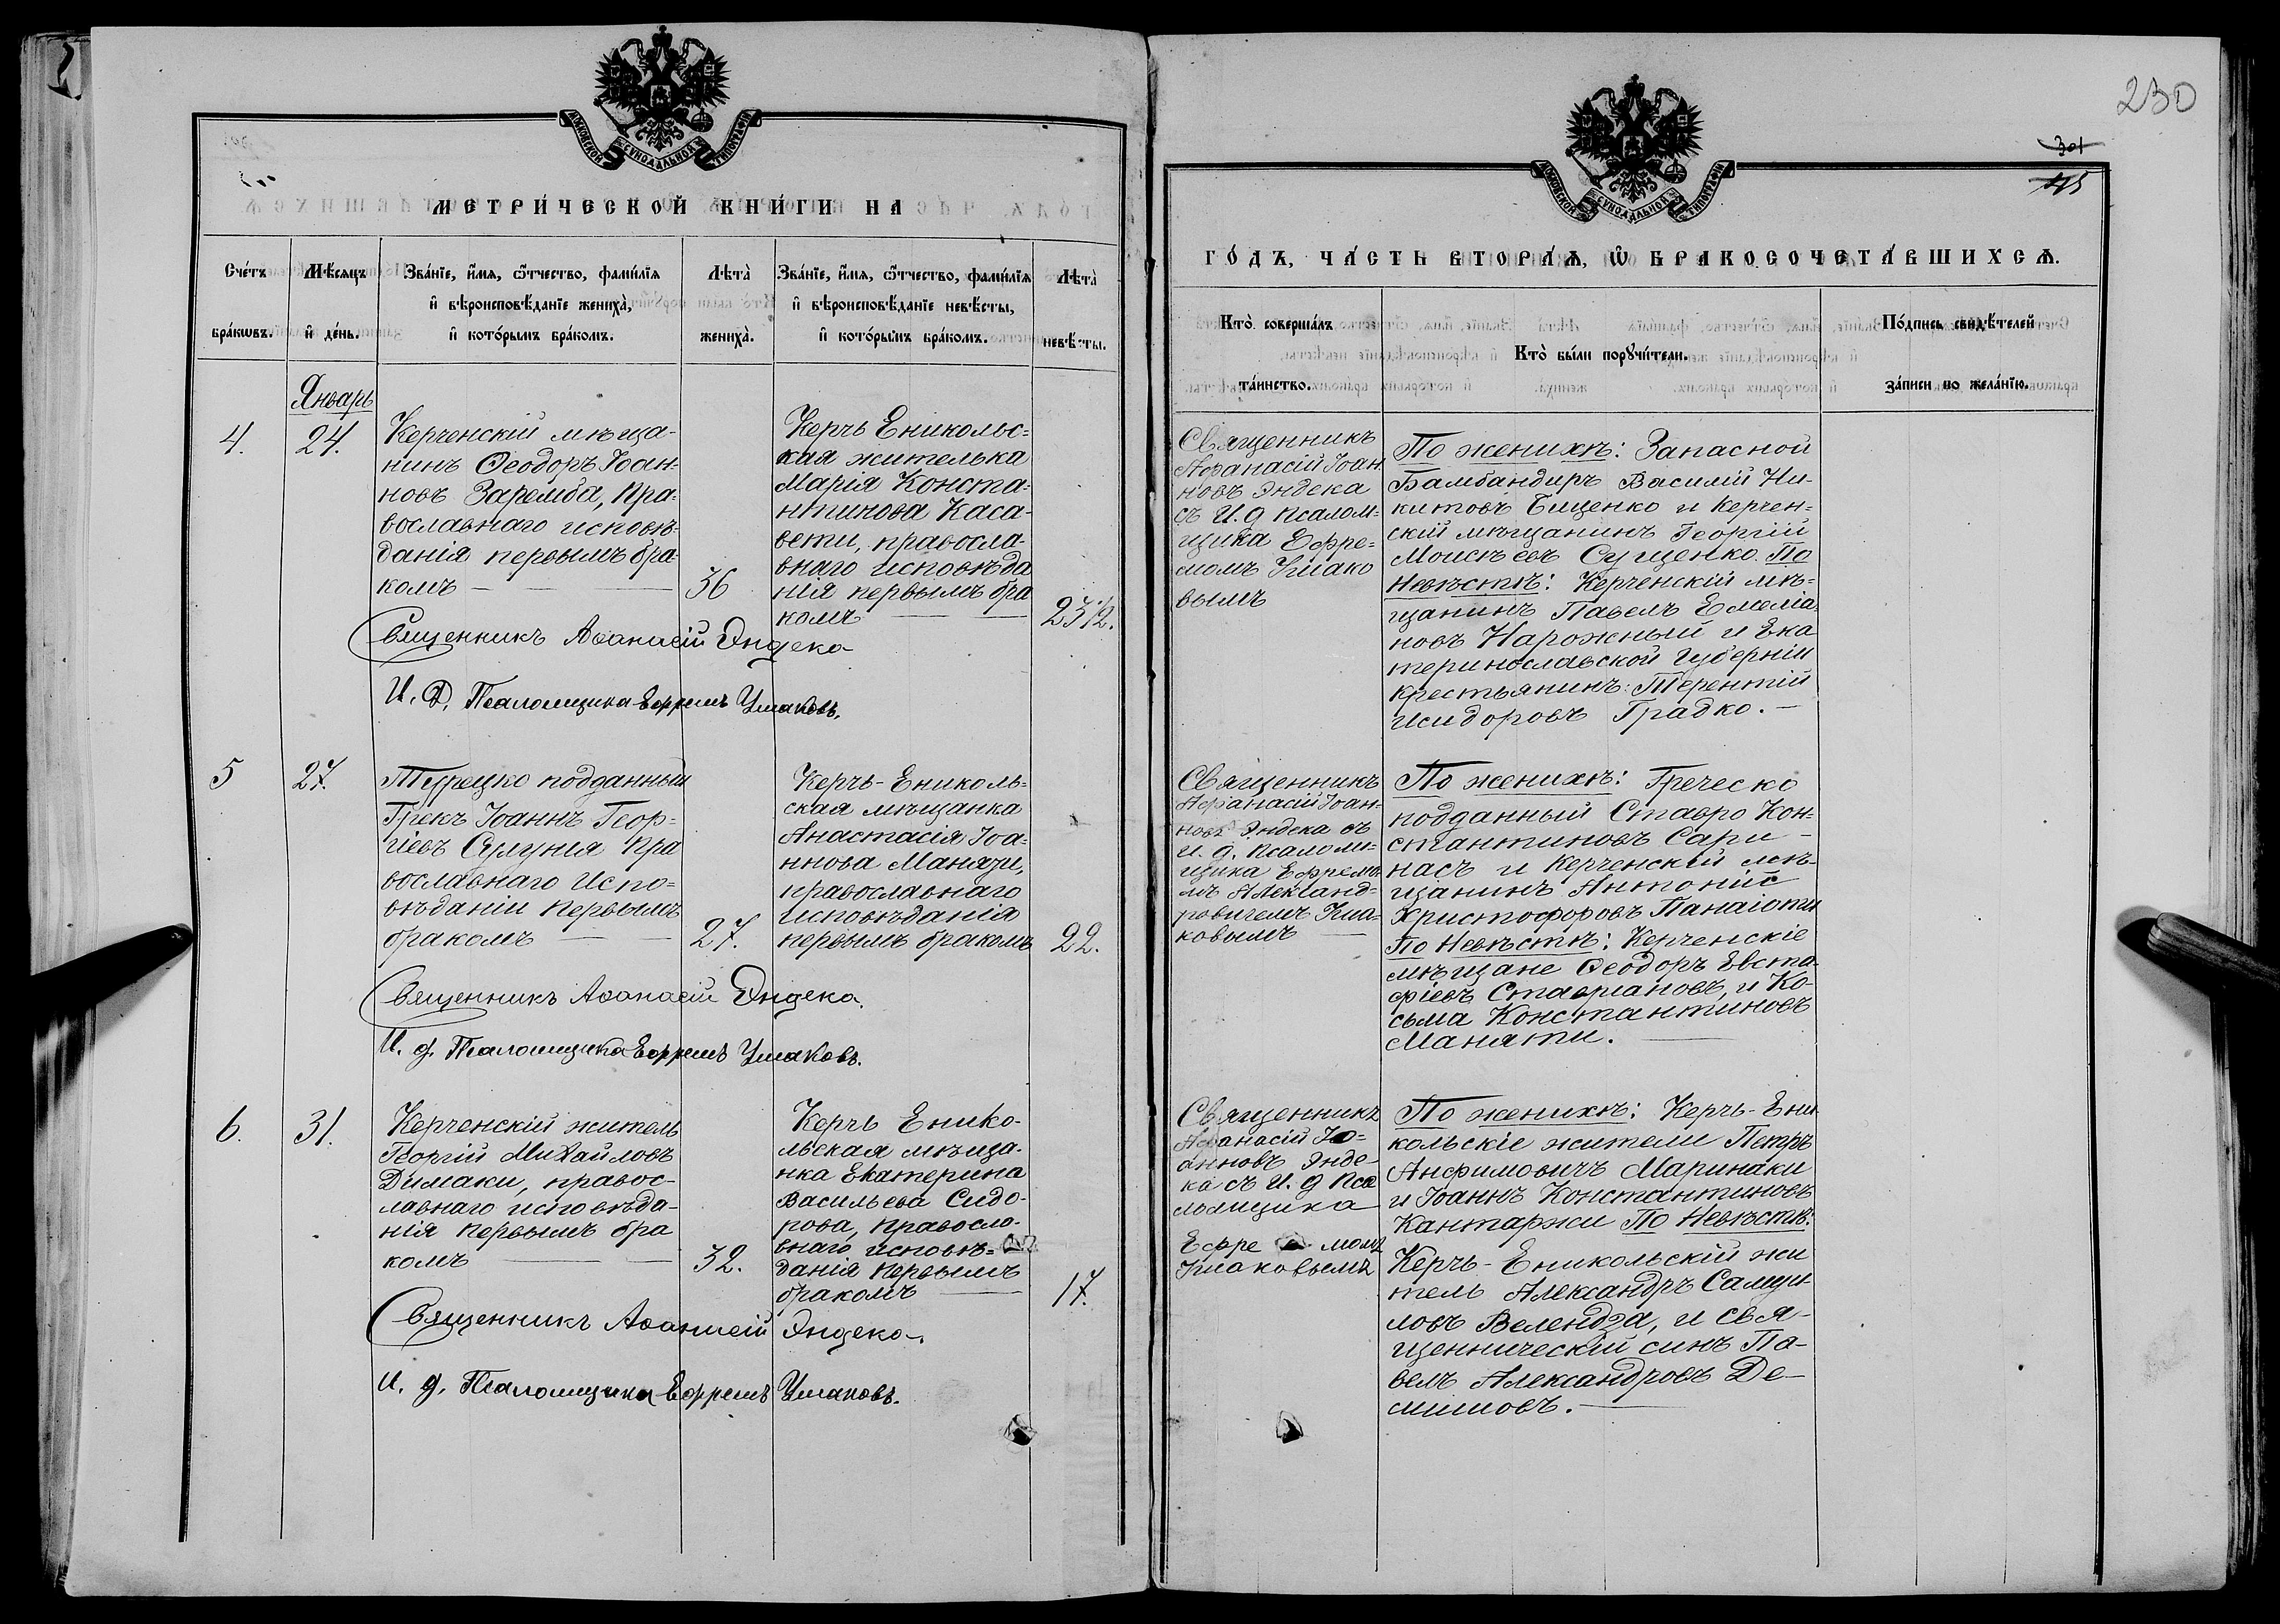 МОСКОВСКОЙ СѴНОДАЛЬНОЙ ТИПОГРАФІИ
МЕТРИ́ЧЕСКОЙ КНИ́ГИ НА
Сче́тъ
бра́кωвъ.
Мѣ́сяцъ
и҆ де́нь.
Зва́нїе, и҆́мѧ, ѻ҆́тчество, фами́лїѧ
и҆ вѣроисповѣ́данїе женихà,
и҆ кото́рымъ бра́комъ.
Лѣтà
женихà.
Зва́нїе, и҆́мѧ, ѻ҆́тчество, фами́лїѧ
и҆ вѣроисповѣ́данїе невѣ́сты,
и҆ кото́рымъ бра́комъ.
Лѣтà
невѣ́сты.
Январь
4.
24.
Керченскій мѣща-
нинъ Ѳеодоръ Іоан-
новъ Заремба, пра-
вославнаго исповѣ-
данія первымъ бра-
комъ
36
Керчь Еникольс=
кая жителька
Марія Конста-
нтинова Каса-
вети, правосла-
внаго исповѣда
нія первымъ бра
комъ
23 1/2.
Священникъ Аѳанасій Эндека
И. Д. Псаломщика Ефремъ Ушаковъ.
5
27.
Турецко подданный
Грекъ Іоаннъ Геор-
гіевъ пра
вославнаго Испо=
вѣданіи первымъ
бракомъ
27.
Керчь-Ениколь-
ская мѣщанка
Анастасія Іоа-
ннова Маняти,
православнаго
исповѣданія
первымъ бракомъ
22.
Священникъ Аѳанасій Эндека.
И. д. Псаломщика Ефремъ Ушаковъ.
6.
31.
Керченскій житель
Георгій Михайловъ
Димаки, правос-
лавнаго исповѣда-
нія первымъ бра
комъ
32.
Керчь Енико-
льская мѣща-
нка Екатерина
Васильева Сидо-
рова, правосла-
внаго исповѣ=
данія первымъ
бракомъ
17.
Священникъ Аѳанасій Эндека.
И. д. Псаломщика Ефремъ Ушаковъ.
230
301
МОСКОВСКОЙ СѴНОДАЛЬНОЙ ТИПОГРАФІИ
ГО́ДЪ, ЧА́СТЬ ВТОРА́Ѧ, Ѡ҆ БРАКОСОЧЕТА́ВШИХСѦ.
Ктò соверша́лъ
та́инство.
Ктò бы́ли порꙋчи́тели.
По́дпись свидѣ́телей
за́писи по жела́нїю.
Священникъ
Афанасій Іоан
новъ Эндека
съ И. д псалом-
щика Ефре=
момъ Ушако
вымъ
По женихѣ: Запасной
Бамбандиръ Василій Ни-
китовъ Бищенко и Керчен=
скій мѣщанинъ Георгій
Моисѣевъ Сущенко. По
Невѣстѣ: Керченскій мѣ-
щанинъ Павелъ Емеліа-
новъ Нарожный и Ека
теринославской Губерніи
крестьянинъ: Терентій
Исидоровъ Градко.
Священникъ
Афанасій Іоан-
новъ Эндека съ
И. д. псалом-
щика Ефремо-
мъ Александ-
ровичемъ Уша-
ковымъ
По женихѣ: Греческо
подданный Ставро Кон-
стантиновъ Сари-
насъ и Керченскій мѣ-
щанинъ Антоній
Христофоровъ Панаіоти
По Невѣстѣ: Керченскіе
мѣщане Ѳеодоръ Евста-
фіевъ Ставріановъ, и Ко-
сьма Константиновъ
Маняти.
Священникъ
Афанасій Іо=
анновъ Энде-
ка съ И. д Пса
ломщика
Ефре момъ
Ушаковымъ
По женихѣ: Керчь-Ени
кольскіе жители Петръ
Анфимовичъ Маринаки
и Іоаннъ Константиновъ
Кантаржи По Невѣстѣ:
Керчь-Еникольскій жи
тель Александръ Самуи
ловъ Велендза, и свя-
щенническій синъ Па-
велъ Александровъ Де-
мишовъ.